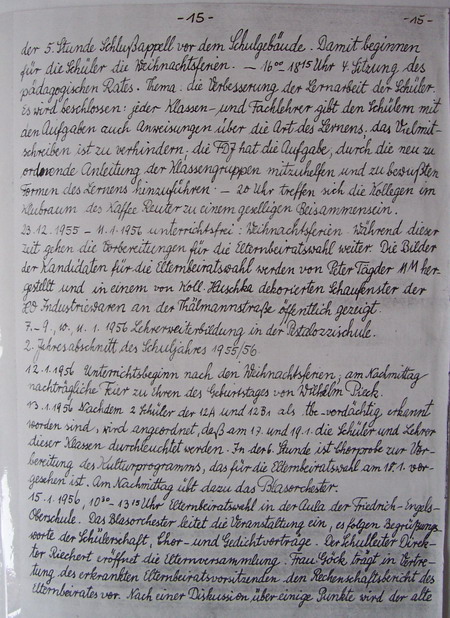 - 15 -
- 15 -
der 5. Stunde Schlußappell vor dem Schulgebäude. Damit beginnen
für die Schüler die Weihnachtsferien. – 16⁰⁰ 18¹⁵ Uhr 4. Sitzung des
pädagogischen Rates. Thema: die Verbesserung der Lernarbeit der Schüler.
Es wird beschlossen: jeder Klassen- und Fachlehrer gibt den Schülern mit
den Aufgaben auch Anweisungen über die Art des Lernens, das Vielmit-
schreiben ist zu verhindern, die FDJ hat die Aufgabe, durch die neu zu
ordnende Anleitung der Klassengruppen mitzuhelfen und zu bewußten
Formen des Lernens hinzuführen. – 20 Uhr treffen sich die Kollegen im
Klubraum des Kaffee Reuter zu einem geselligen Beisammensein.
23.12.1955 – 11.1.1956 unterrichtsfrei: Weihnachtsferien. Während dieser
Zeit gehen die Vorbereitungen für die Elternbeiratswahl weiter. Die Bilder
der Kandidaten für die Elternbeiratswahl werden von Peter Tägder MM her-
gestellt und in einem von Koll. Huschka dekorierten Schaufenster der
HO Industriewaren an der Thälmannstraße öffentlich gezeigt.
7.-9., 10. u. 11. 1. 1956 Lehrerweiterbildung in der Pestalozzischule.
2. Jahresabschnitt des Schuljahres 1955/56
12.1.1956 Unterrichtsbeginn nach den Weihnachtsferien; am Nachmittag
nachträgliche Feier zu Ehren des Geburtstages von Wilhelm Pieck.
13.1.1956 Nachdem 2 Schüler der 12A und 12B1 als tbc-verdächtig erkannt
worden sind, wird angeordnet, daß am 17. und 19.1. die Schüler und Lehrer
dieser Klassen durchleuchtet werden. In der 6. Stunde ist Chorprobe zur Vor-
bereitung des Kulturprogramms, das für die Elternbeiratswahl am 18.1. vor-
gesehen ist. Am Nachmittag übt dazu das Blasorchester.
15.1.1956, 10³⁰-13¹⁵ Uhr Elternbeiratswahl in der Aula der Friedrich-Engels-
Oberschule. Das Blasorchester leitet die Veranstaltung ein, es folgen Begrüßungs-
worte der Schülerschaft, Chor- und Gedichtvorträge. Der Schulleiter Direk-
tor Riechert eröffnet die Elternversammlung. Frau Göck trägt in Vertre-
tung des erkrankten Elternbeiratsvorsitzenden den Rechenschaftsbericht des
Elternbeirates vor. Nach einer Diskussion über einige Punkte wird der alte